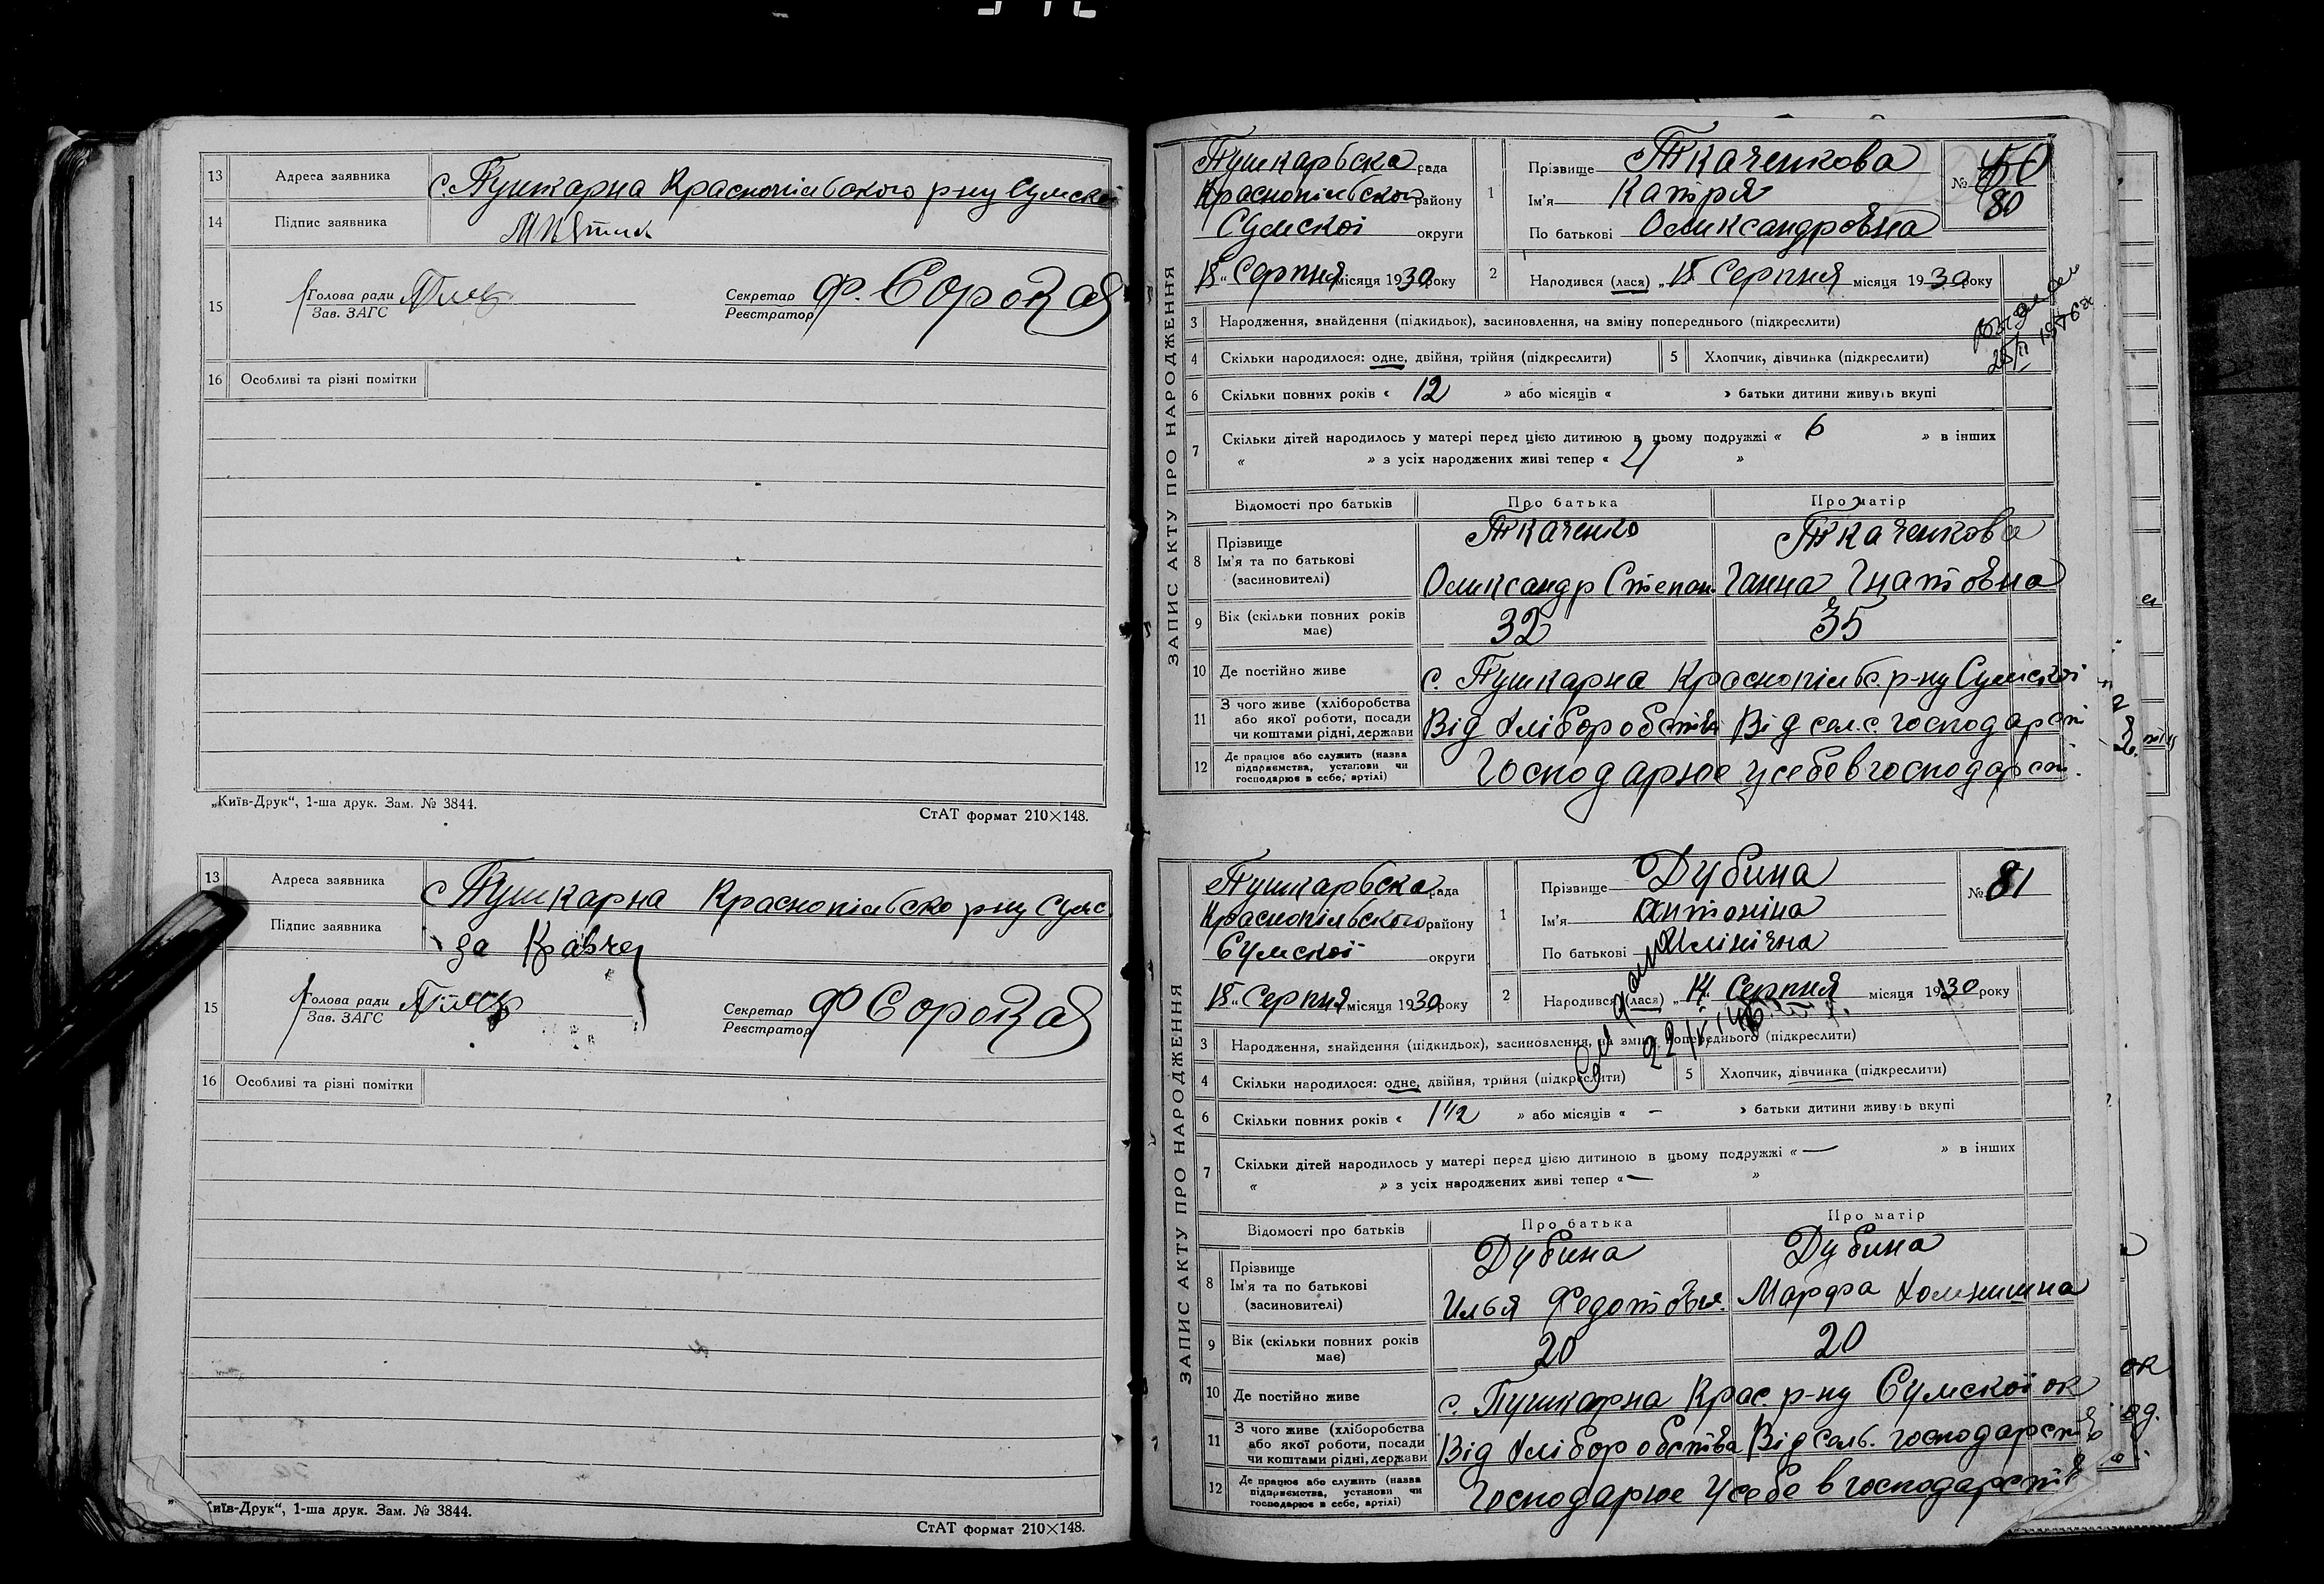 13 Адреса заявника с. Пушкарна Краснопільського р-ну Сумської
14 Підпис заявника
15 Голова ради
Зав. ЗАГС
Секретар Ф. Сорока
Реєстратор
16 Особливі та різні помітки
„Київ-Друк“, 1-ша друк. Зам. № 3844.
СтАТ формат 210×148.
13 Адреса заявника с Пушкарна Краснопільсько р-ну Сумс
Підпис заявника за Кравче
15 Голова ради
Зав. ЗАГС
Секретар Ф Сорока
Реєстратор
16 Особливі та різні помітки
Київ-Друк“, 1-ша друк. Зам. № 3844.
СтАТ формат 210×148.
ЗАПИС АКТУ ПРО НАРОДЖЕННЯ
Пушкарьска рада
Краснопільского району
Сумскоі округи
18 „ Серпня місяця 1930 року
1 Прізвище Ткаченкова
Ім'я Катря
По батькові Оликсандровна
№ 80
2 Народився (лася) „18 Серпня місяця 1930 року
3 Народження, знайдення (підкидьок), засиновлення, на зміну попереднього (підкреслити)
4 Скільки народилося: одне, двійня, трійня (підкреслити) 5 Хлопчик, дівчинка (підкреслити)
6 Скільки повних років « 12 » або місяців « » батьки дитини живуть вкупі
7 Скільки дітей народилось у матері перед цією дитиною в цьому подружжі « 6 » в інших
« » з усіх народжених живі тепер « »
Відомості про батьків Про батька Про матір
8 Прізвище Ткаченко Ткаченкова
Ім'я та по батькові
(засиновителі) Оликсандр Степан. Ганна Гнатовна
9 Вік (скільки повних років має) 32 35
10 Де постійно живе с. Пушкарна Краснопільс. р-ну Сумскоі
11 З чого живе (хліборобства
або якої роботи, посади
чи коштами рідні, держави Від хліборобства Від сел.с. господарст
12 Де працює або служить (назва
підприємства, установи чи
господарює в себе, артілі) Господарює у себе в господарст.
ЗАПИС АКТУ ПРО НАРОДЖЕННЯ
Пушкарьска рада
Краснопільского району
Сумскої округи
18 „ Серпня місяця 1930 року
1 Прізвище Дубина
Ім'я Антоніна
По батькові Иллінічна
№ 81
2 Народився (лася) „14 Серпня місяця 1930 року
3 Народження, знайдення (підкидьок), засиновлення, на зміну попереднього (підкреслити)
4 Скільки народилося: одне, двійня, трійня (підкреслити) 5 Хлопчик, дівчинка (підкреслити)
6 Скільки повних років « 1 1/2 » або місяців « — » батьки дитини живуть вкупі
7 Скільки дітей народилось у матері перед цією дитиною в цьому подружжі « — » в інших
« » з усіх народжених живі тепер « — »
Відомості про батьків Про батька Про матір
8 Прізвище Дубина Дубина
Ім'я та по батькові
(засиновителі) Илья Федотовы. Марфа
9 Вік (скільки повних років має) 20 20
10 Де постійно живе с. Пушкарна Крас. р-ну Сумскої ок
11 З чого живе (хліборобства
або якої роботи, посади
чи коштами рідні, держави Від хліборобства Від сель. господарств
12 Де працює або служить (назва
підприємства, установи чи
господарює в себе, артілі) Господарює у себе в господарств